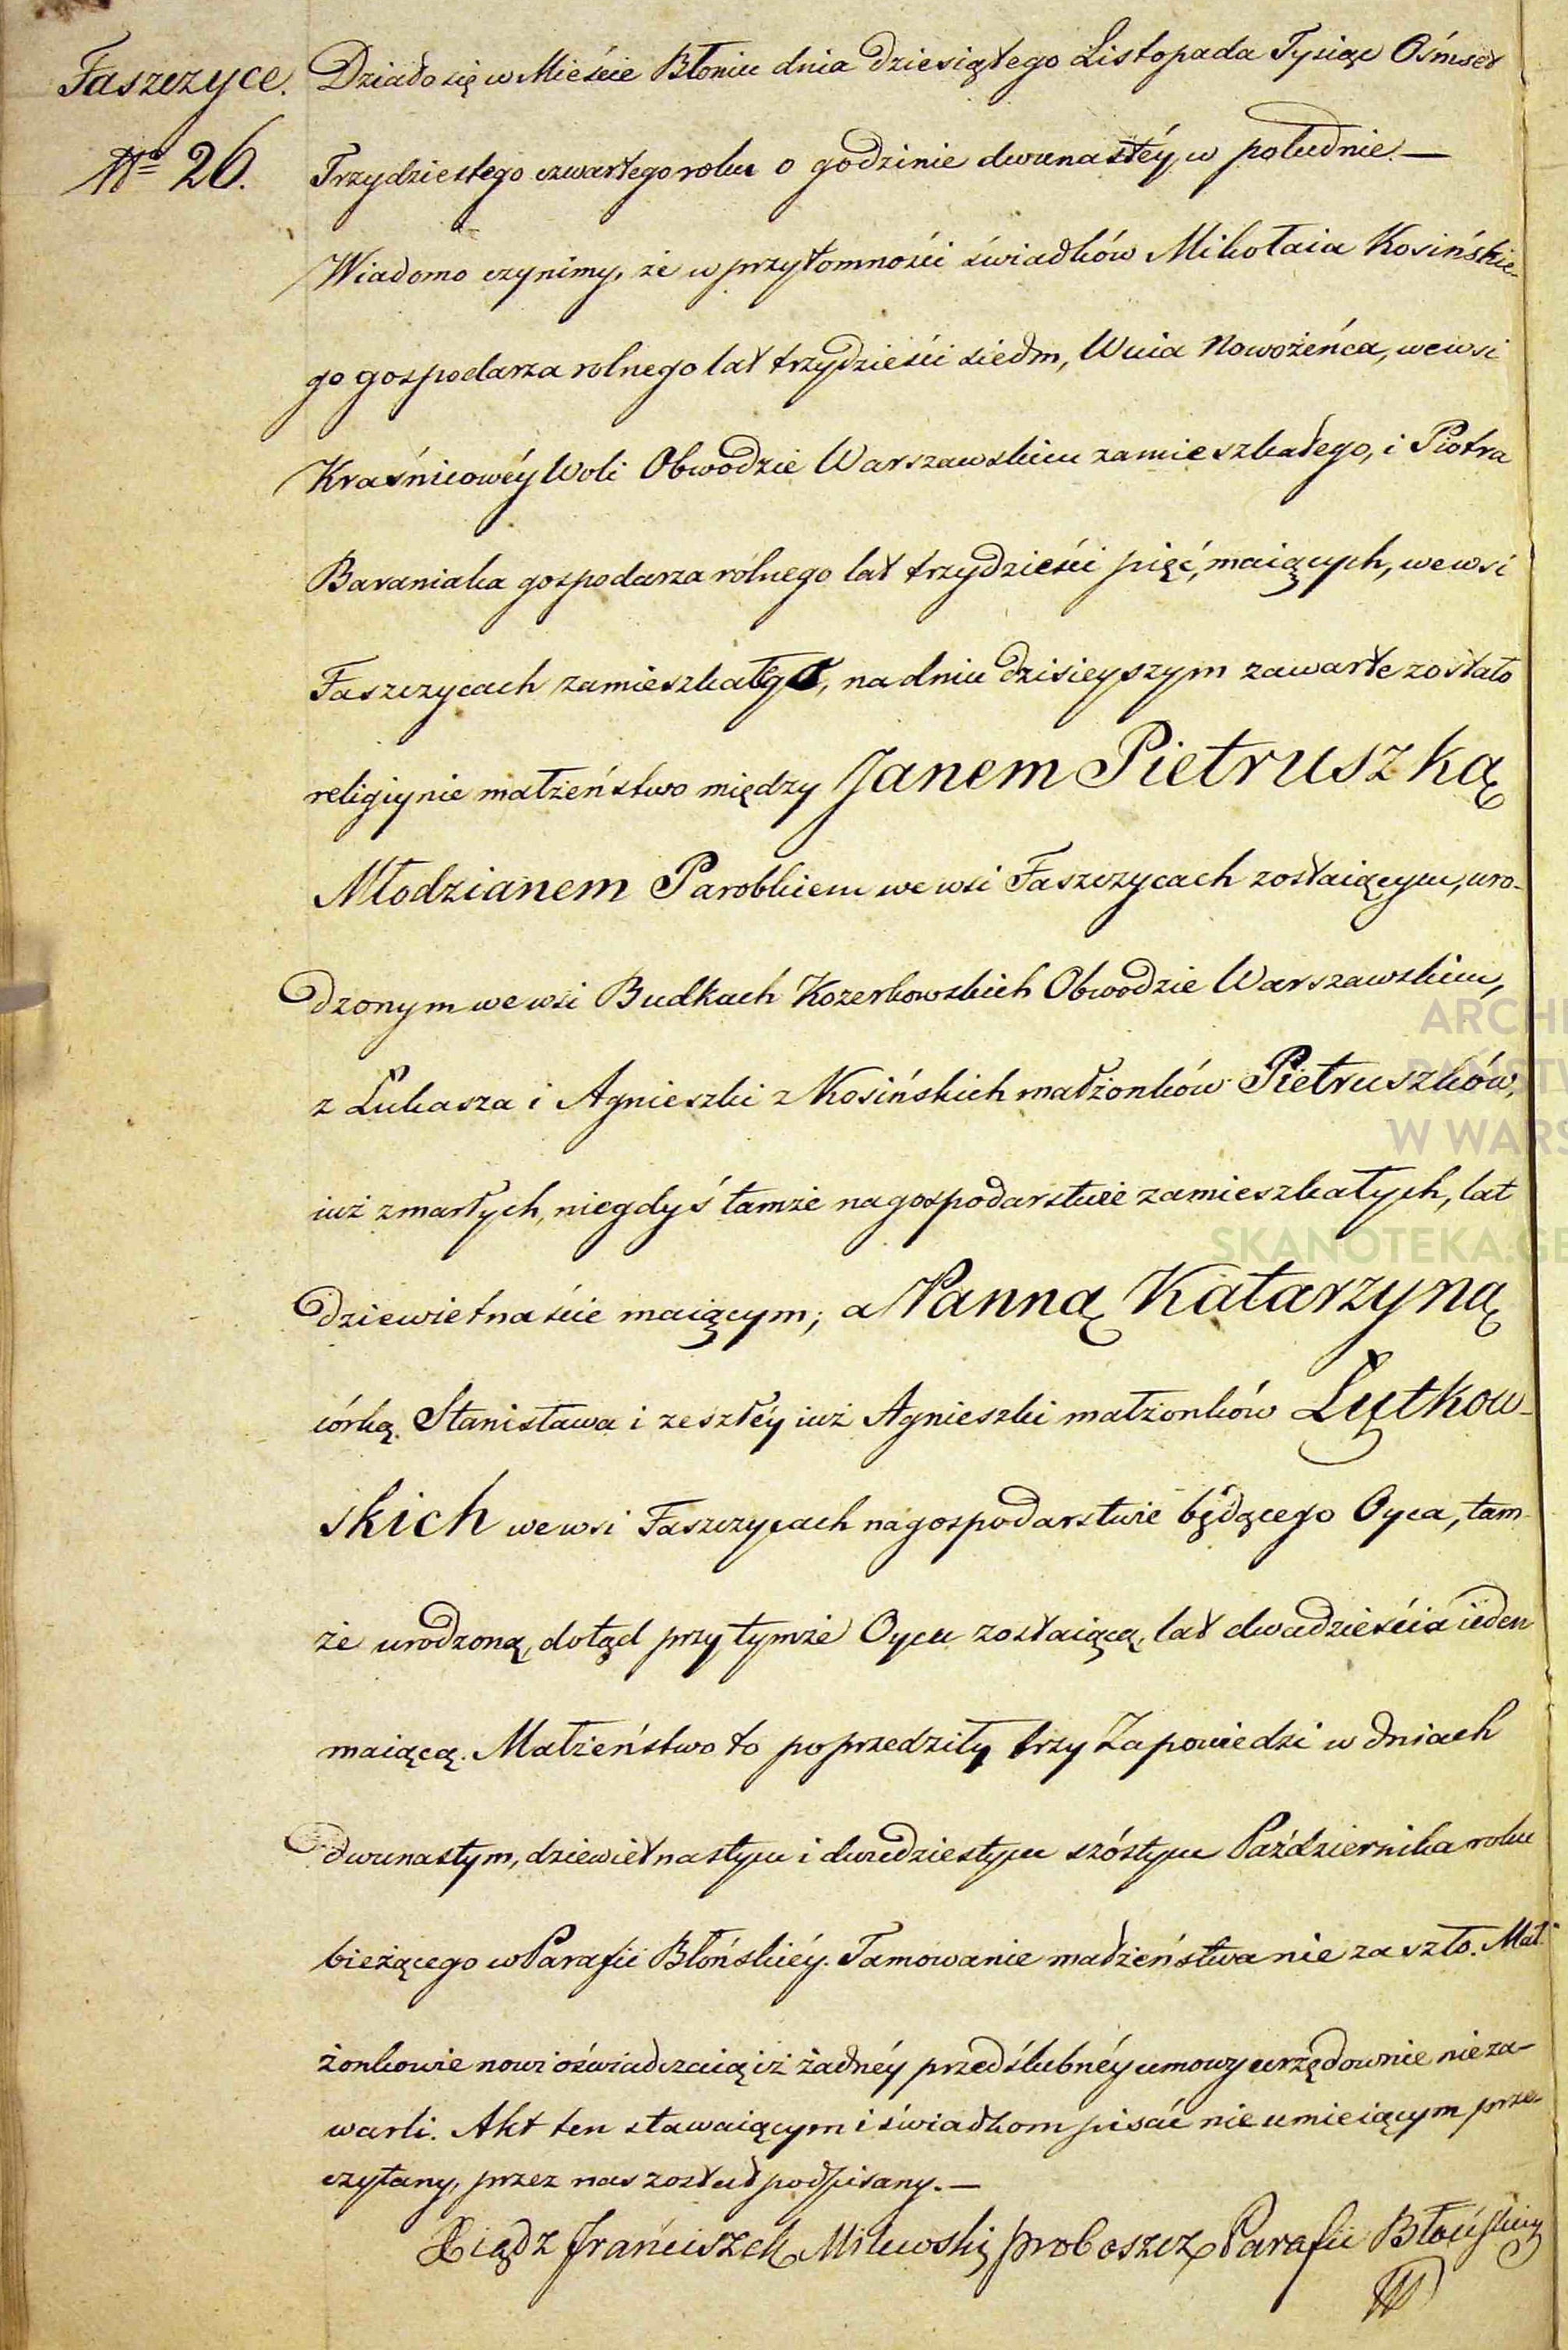 Faszczyce.
№ 26.
Działo się w Mieście Błoniu dnia dziesiątego Listopada Tysiąc Ośmset
Trzydziestego czwartego roku o godzinie dwunastéy w południe. —
Wiadomo czynimy, że w przytomności świadków Mikołaia Kosińskie-
go gospodarza rolnego lat trzydzieści siedm, Wuia Nowożeńca, we wsi
Kraśnicowéy Woli Obwodzie Warszawskim zamieszkałego, i Piotra
Baraniaka gospodarza rólnego lat trzydzieści pięć, maiących, we wsi
Faszczycach zamieszkałego, na dniu dzisieyszym zawarte zostało
religiynie małżeństwo między Janem Pietruszką
Młodzianem Parobkiem we wsi Faszczycach zostaiącym, uro-
dzonym we wsi Budkach Kozerkowskich Obwodzie Warszawskim,
z Łukasza i Agnieszki z Kosińskich małżonków Pietruszków,
iuż zmarłych, niegdyś tamże na gospodarstwie zamieszkałych, lat
dziewietnaście maiącym; a Panną Katarzyną
córką Stanisława i zeszłéy iuż Agnieszki małżonków Lutkow-
skich we wsi Faszczycach na gospodarstwie będącego Oyca, tam-
że urodzoną, dotąd przy tymże Oycu zostaiącą, lat dwadzieścia ieden
maiącą. Małżeństwo to poprzedziły trzy Zapowiedzi w dniach
dwunastym, dziewiętnastym i dwudziestym szóstym Października roku
bieżącego w Parafii Błońskiéy. Tamowanie małżeństwa nie zaszło. Mał-
żonkowie nowi oświadczaią iż żadnéy przedślubnéy umowy urzędownie nie za-
warli. Akt ten stawaiącym i świadkom pisać nie umieiącym prze-
czytany, przez nas został podpisany. —
Xiądz Franciszek Milewski proboszcz Parafii Błońskiey
ARCHI
PAŃSTW
W WARS
SKANOTEKA.GE